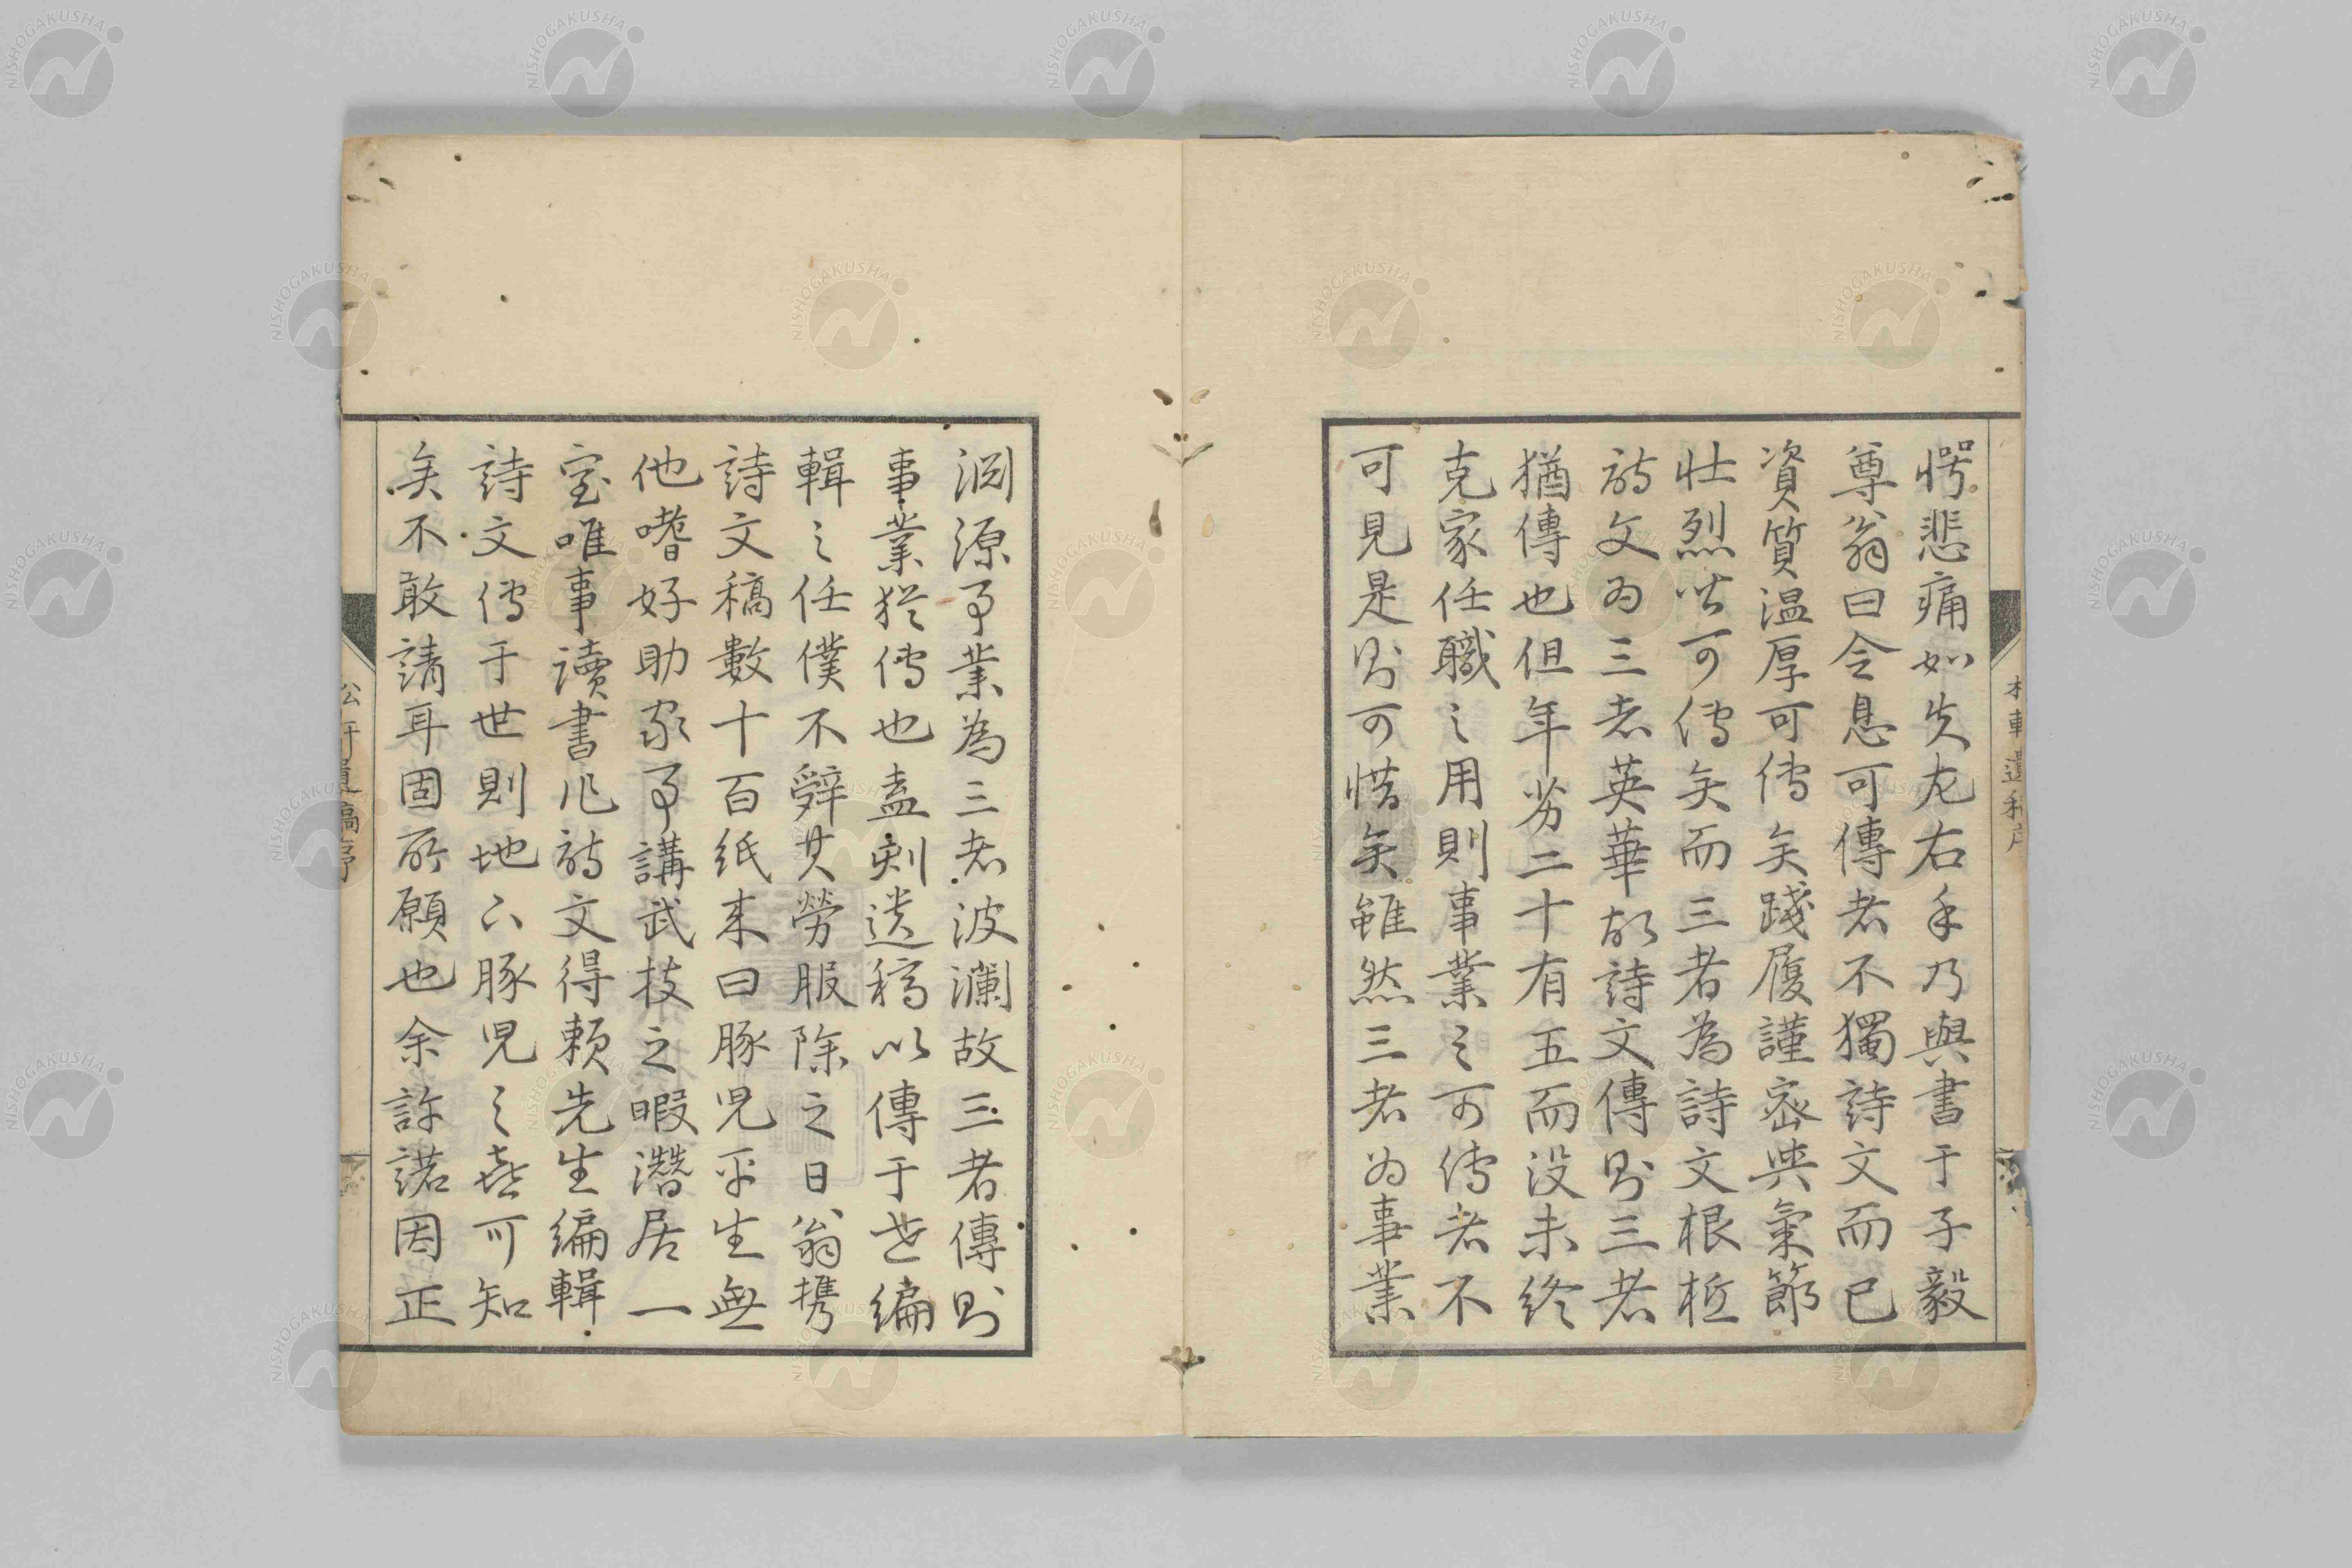 愕悲痛如失左右手乃與書于子毅
尊翁曰令息可傳者不獨詩文而已
資質温厚可傳矣踐履謹密與氣節
壮烈皆可傳矣而三者為詩文根柢
詩文為三者英華故詩文傳則三者
猶傳也但年劣二十有五而没未終
克家任職之用則事業之可傳者不
可見是則可惜矣雖然三者為事業
淵源事業為三者波瀾故三者傳則
事業猶傳也盍刻遺稿以傳于世編
輯之任僕不辭其勞服除之日翁携
詩文稿數十百紙来曰豚児平生無
他嗜好助家事講武技之暇潛居一
室唯事讀書作詩文得頼先生編輯
詩文傳于世則地下豚児之喜可知
矣不敢請耳固所願也余許諾因正
松軒遺稿序
NISHOGAKUSHA